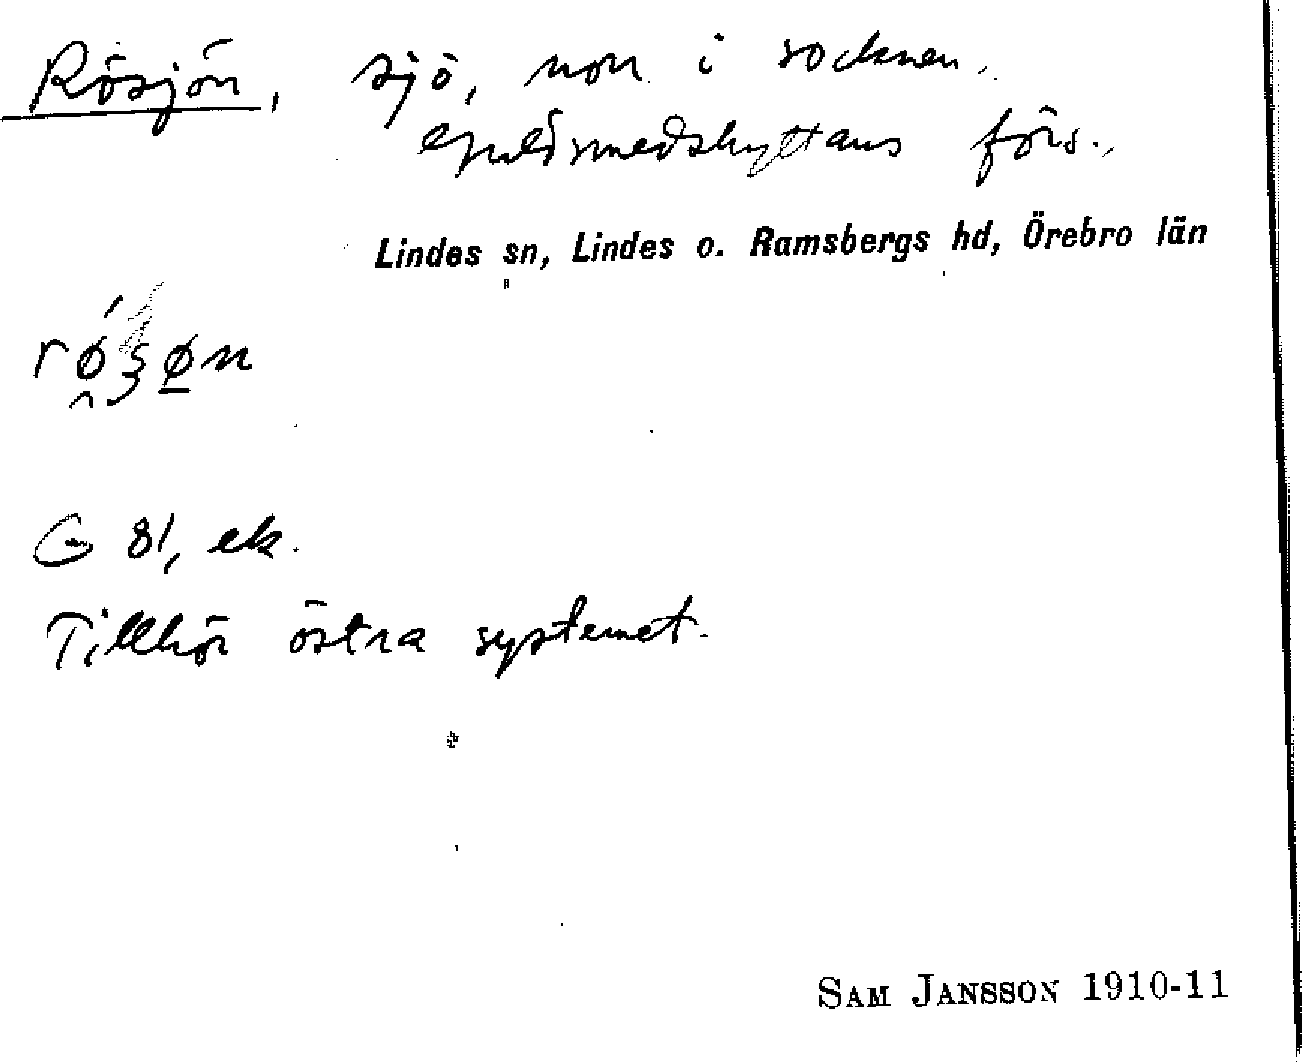 Rösjön, sjö, norr i socknen,
Guldsmedshyttans förs.,
Lindes sn, Lindes o. Ramsbergs hd, Örebro län
G 81, ek.
Tillhör östra systemet.
SAM JANSSON 1910-11